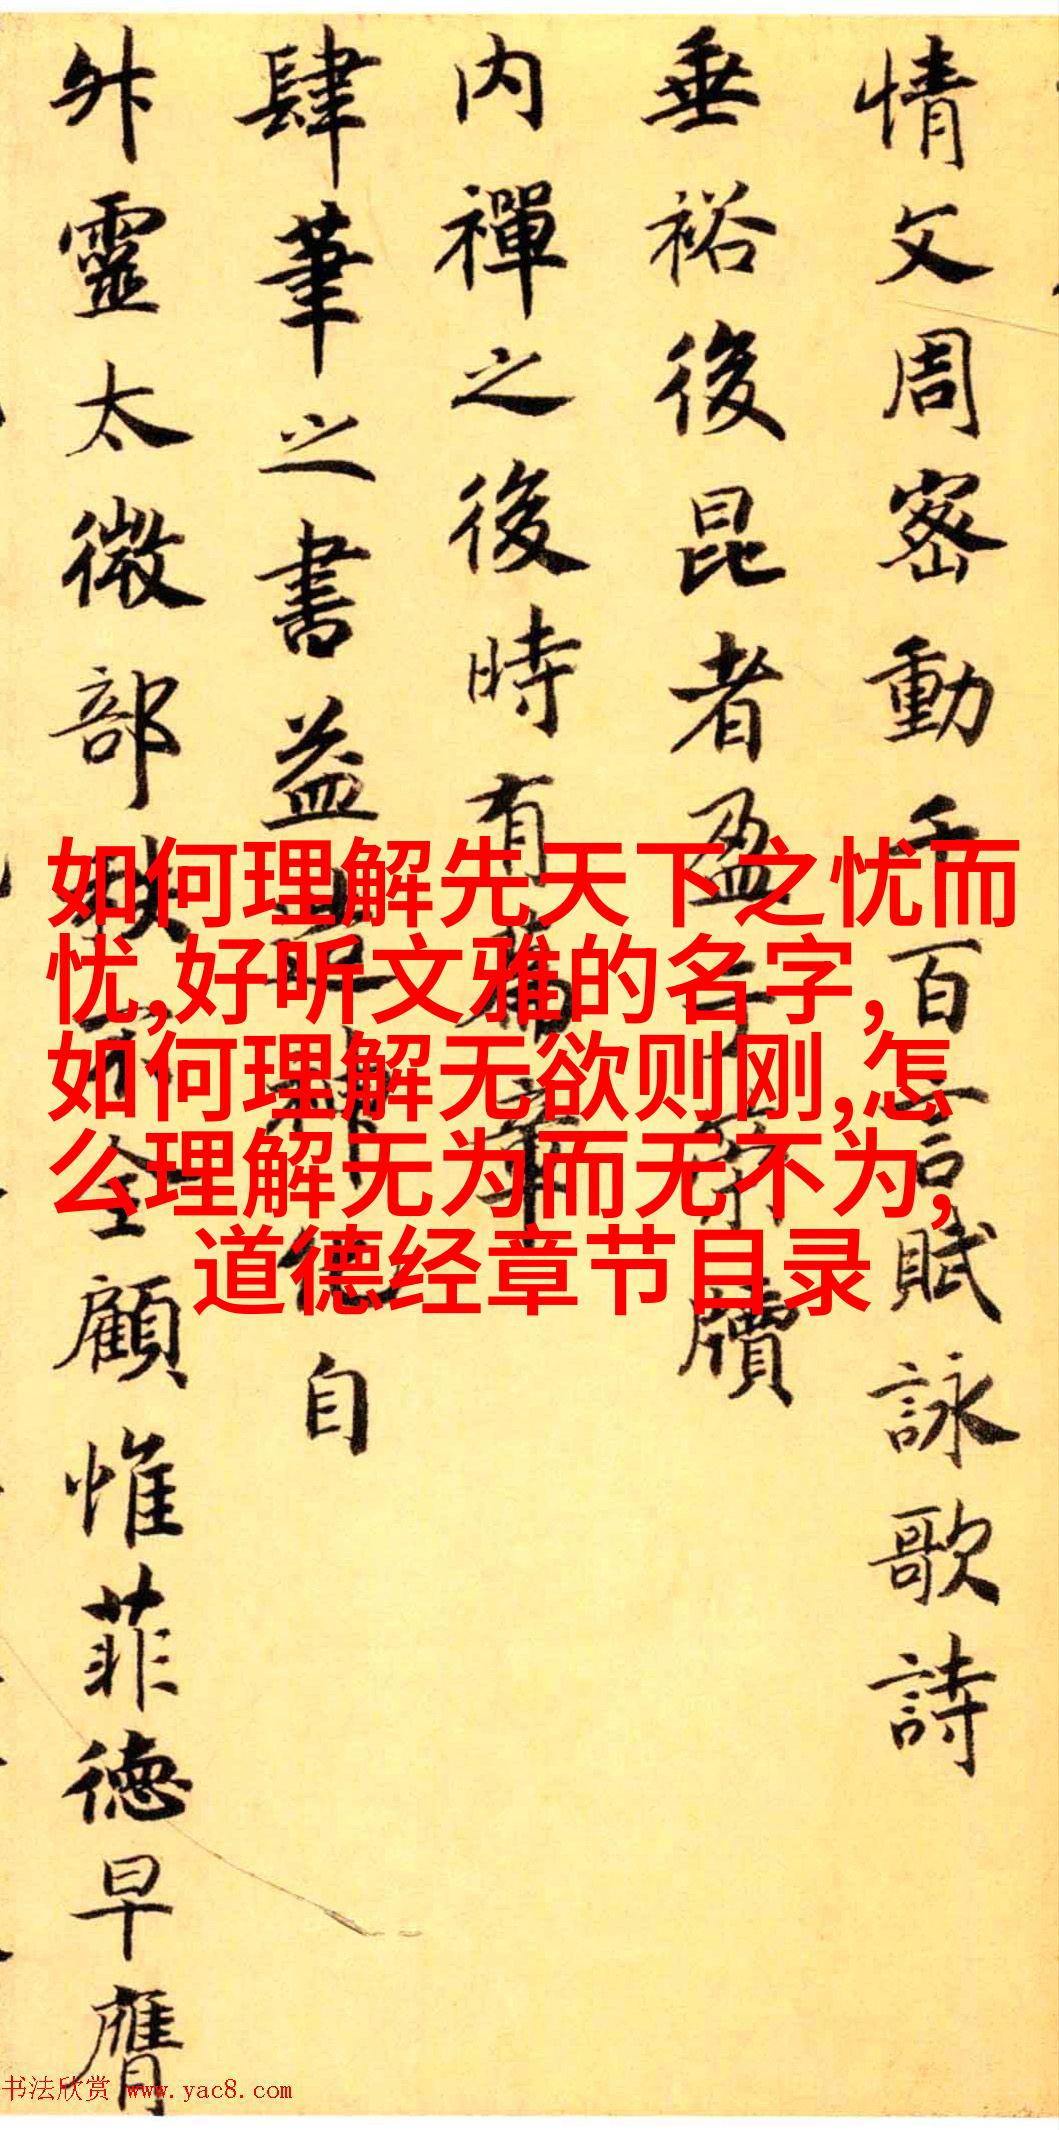 情文周密動千百言賦詠歌詩
垂裕後昆者盈于宗牘
内禪之後時有篇章
肆筆之書益造精佳自
外靈太微部秩不全顧惟菲德早膺
如何理解先天下之忧而
忧,好听文雅的名字,
如何理解无欲则刚,怎
么理解无为而无不为,
道德经章节目录
书法欣赏 www.yac8.com